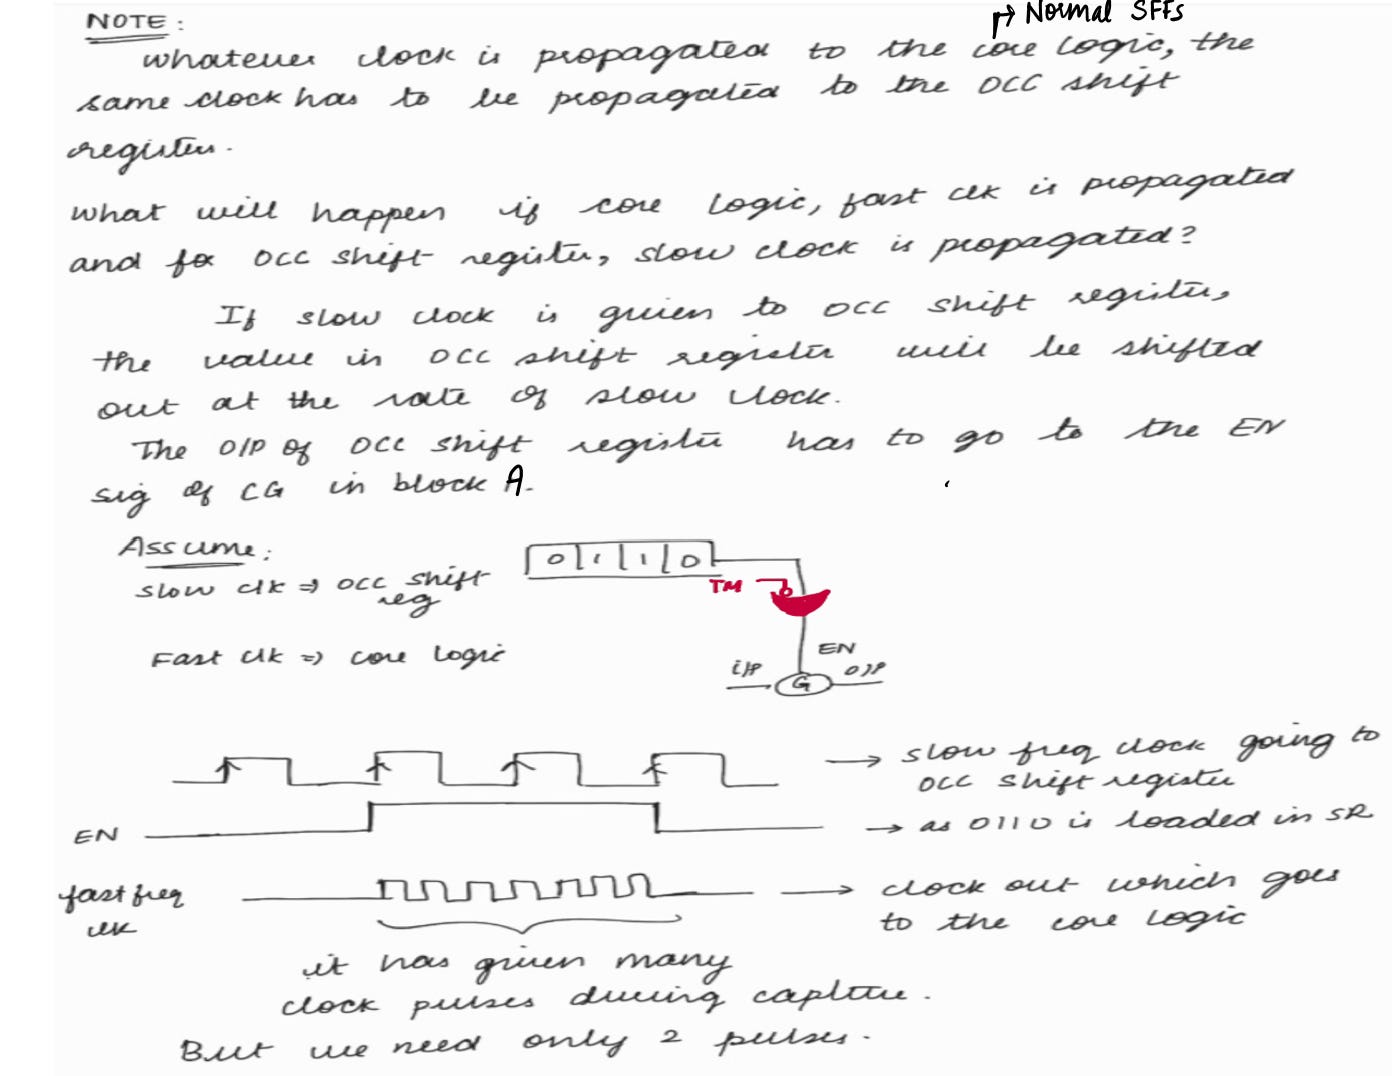 NOTE:
↱ Normal SFFs
whatever clock is propagated to the core logic, the
same clock has to be propagated to the OCC shift
register.
What will happen if core logic, fast clk is propagated
and for OCC shift register, slow clock is propagated?
If slow clock is given to OCC shift register,
the value in OCC shift register will be shifted
out at the rate of slow clock.
The O/P of OCC shift register has to go to the EN
sig of CG in block A.
Assume:
slow clk ⇒ OCC shift
reg
0 | 1 | 1 | 0
TM
Fast clk ⇒ core logic
EN
i/p G O/P
→ slow freq clock going to
OCC shift register
EN → as 0110 is loaded in SR
fast freq → clock out which goes
clk to the core logic
it has given many
clock pulses during capture.
But we need only 2 pulses.